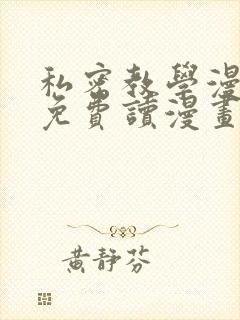 私密教學漫
免費讀漫畫
黃靜芬